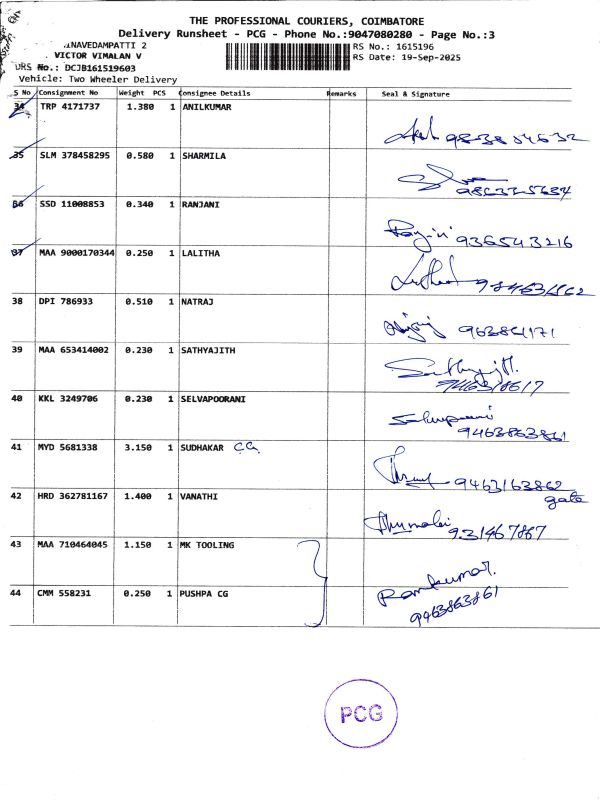 THE PROFESSIONAL COURIERS, COIMBATORE
Delivery Runsheet - PCG - Phone No.:9047080280 - Page No.:3
NAVEDAMPATTI 2 RS No.: 1615196
VICTOR VIMALAN V RS Date: 19-Sep-2025
DRS No.: DCJB161519603
Vehicle: Two Wheeler Delivery
S No Consignment No Weight PCS Consignee Details Remarks Seal & Signature
34 TRP 4171737 1.380 1 ANILKUMAR
35 SLM 378458295 0.580 1 SHARMILA
36 SSD 11008853 0.340 1 RANJANI
936543216
37 MAA 9000170344 0.250 1 LALITHA
38 DPI 786933 0.510 1 NATRAJ
39 MAA 653414002 0.230 1 SATHYAJITH
9446318617
40 KKL 3249706 0.230 1 SELVAPOORANI
9463863861
41 MYD 5681338 3.150 1 SUDHAKAR CG
9463163862
gate
42 HRD 362781167 1.400 1 VANATHI
931467867
43 MAA 710464045 1.150 1 MK TOOLING
Ramkumar.
44 CMM 558231 0.250 1 PUSHPA CG
9463863861
PCG